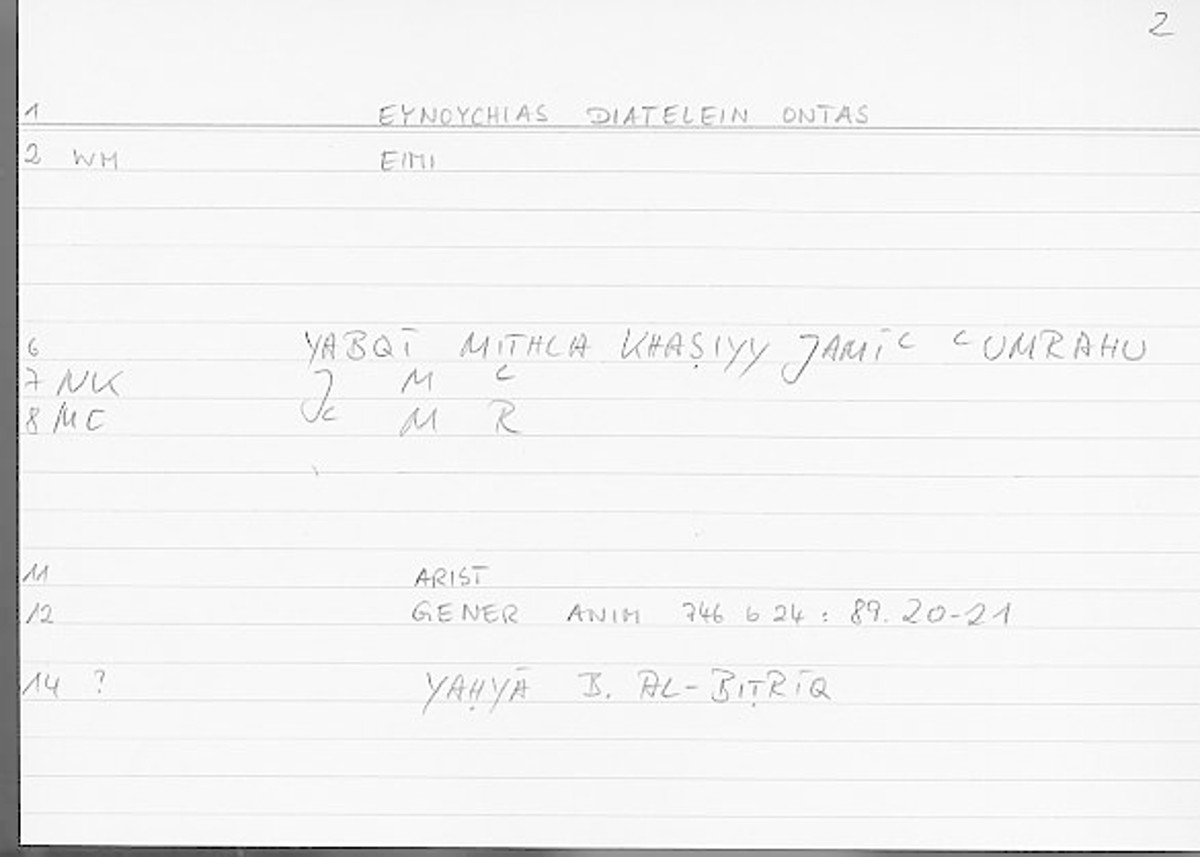 2
1 EYNOYCHIAS DIATELEIN ONTAS
2 WM EIMI
6 YABQĪ MITHLA KHAṢIYY JAMĪC CUMRAHU
7 NK J M C
8 ME JC M R
11 ARIST
12 GENER ANIM 746 b 24 : 89.20-21
14 ? YAḤYĀ B. AL-BIṬRĪQ